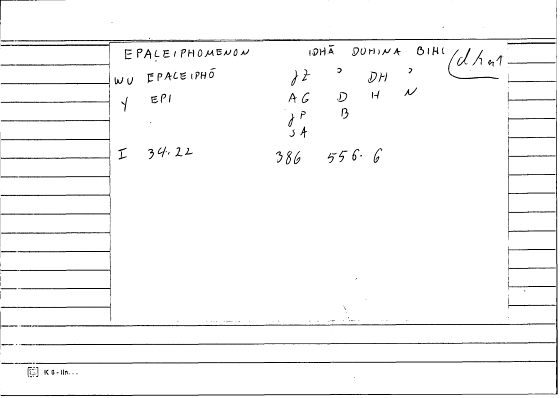 EPALEIPHOMENON IDHĀ DUHINA BIHI (dhn1
WU EPALEIPHŌ ȷZ ʾ DH ʾ
Y EPI AG D H N
ȷP B
SA
I 34.22 386 556.6
K 9-lin...